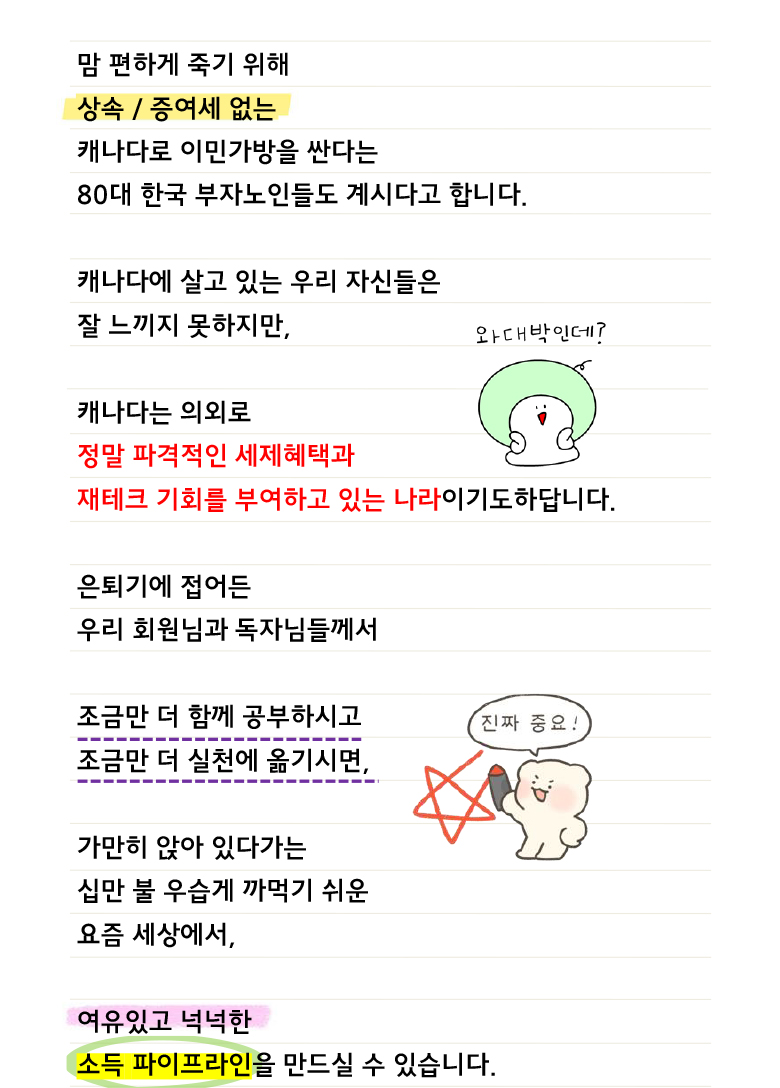 맘 편하게 죽기 위해
상속 / 증여세 없는
캐나다로 이민가방을 싼다는
80대 한국 부자노인들도 계시다고 합니다.
캐나다에 살고 있는 우리 자신들은
잘 느끼지 못하지만,
와 대박인데?
캐나다는 의외로
정말 파격적인 세제혜택과
재테크 기회를 부여하고 있는 나라이기도하답니다.
은퇴기에 접어든
우리 회원님과 독자님들께서
조금만 더 함께 공부하시고
진짜 중요!
조금만 더 실천에 옮기시면,
가만히 앉아 있다가는
십만 불 우습게 까먹기 쉬운
요즘 세상에서,
여유있고 넉넉한
소득 파이프라인을 만드실 수 있습니다.